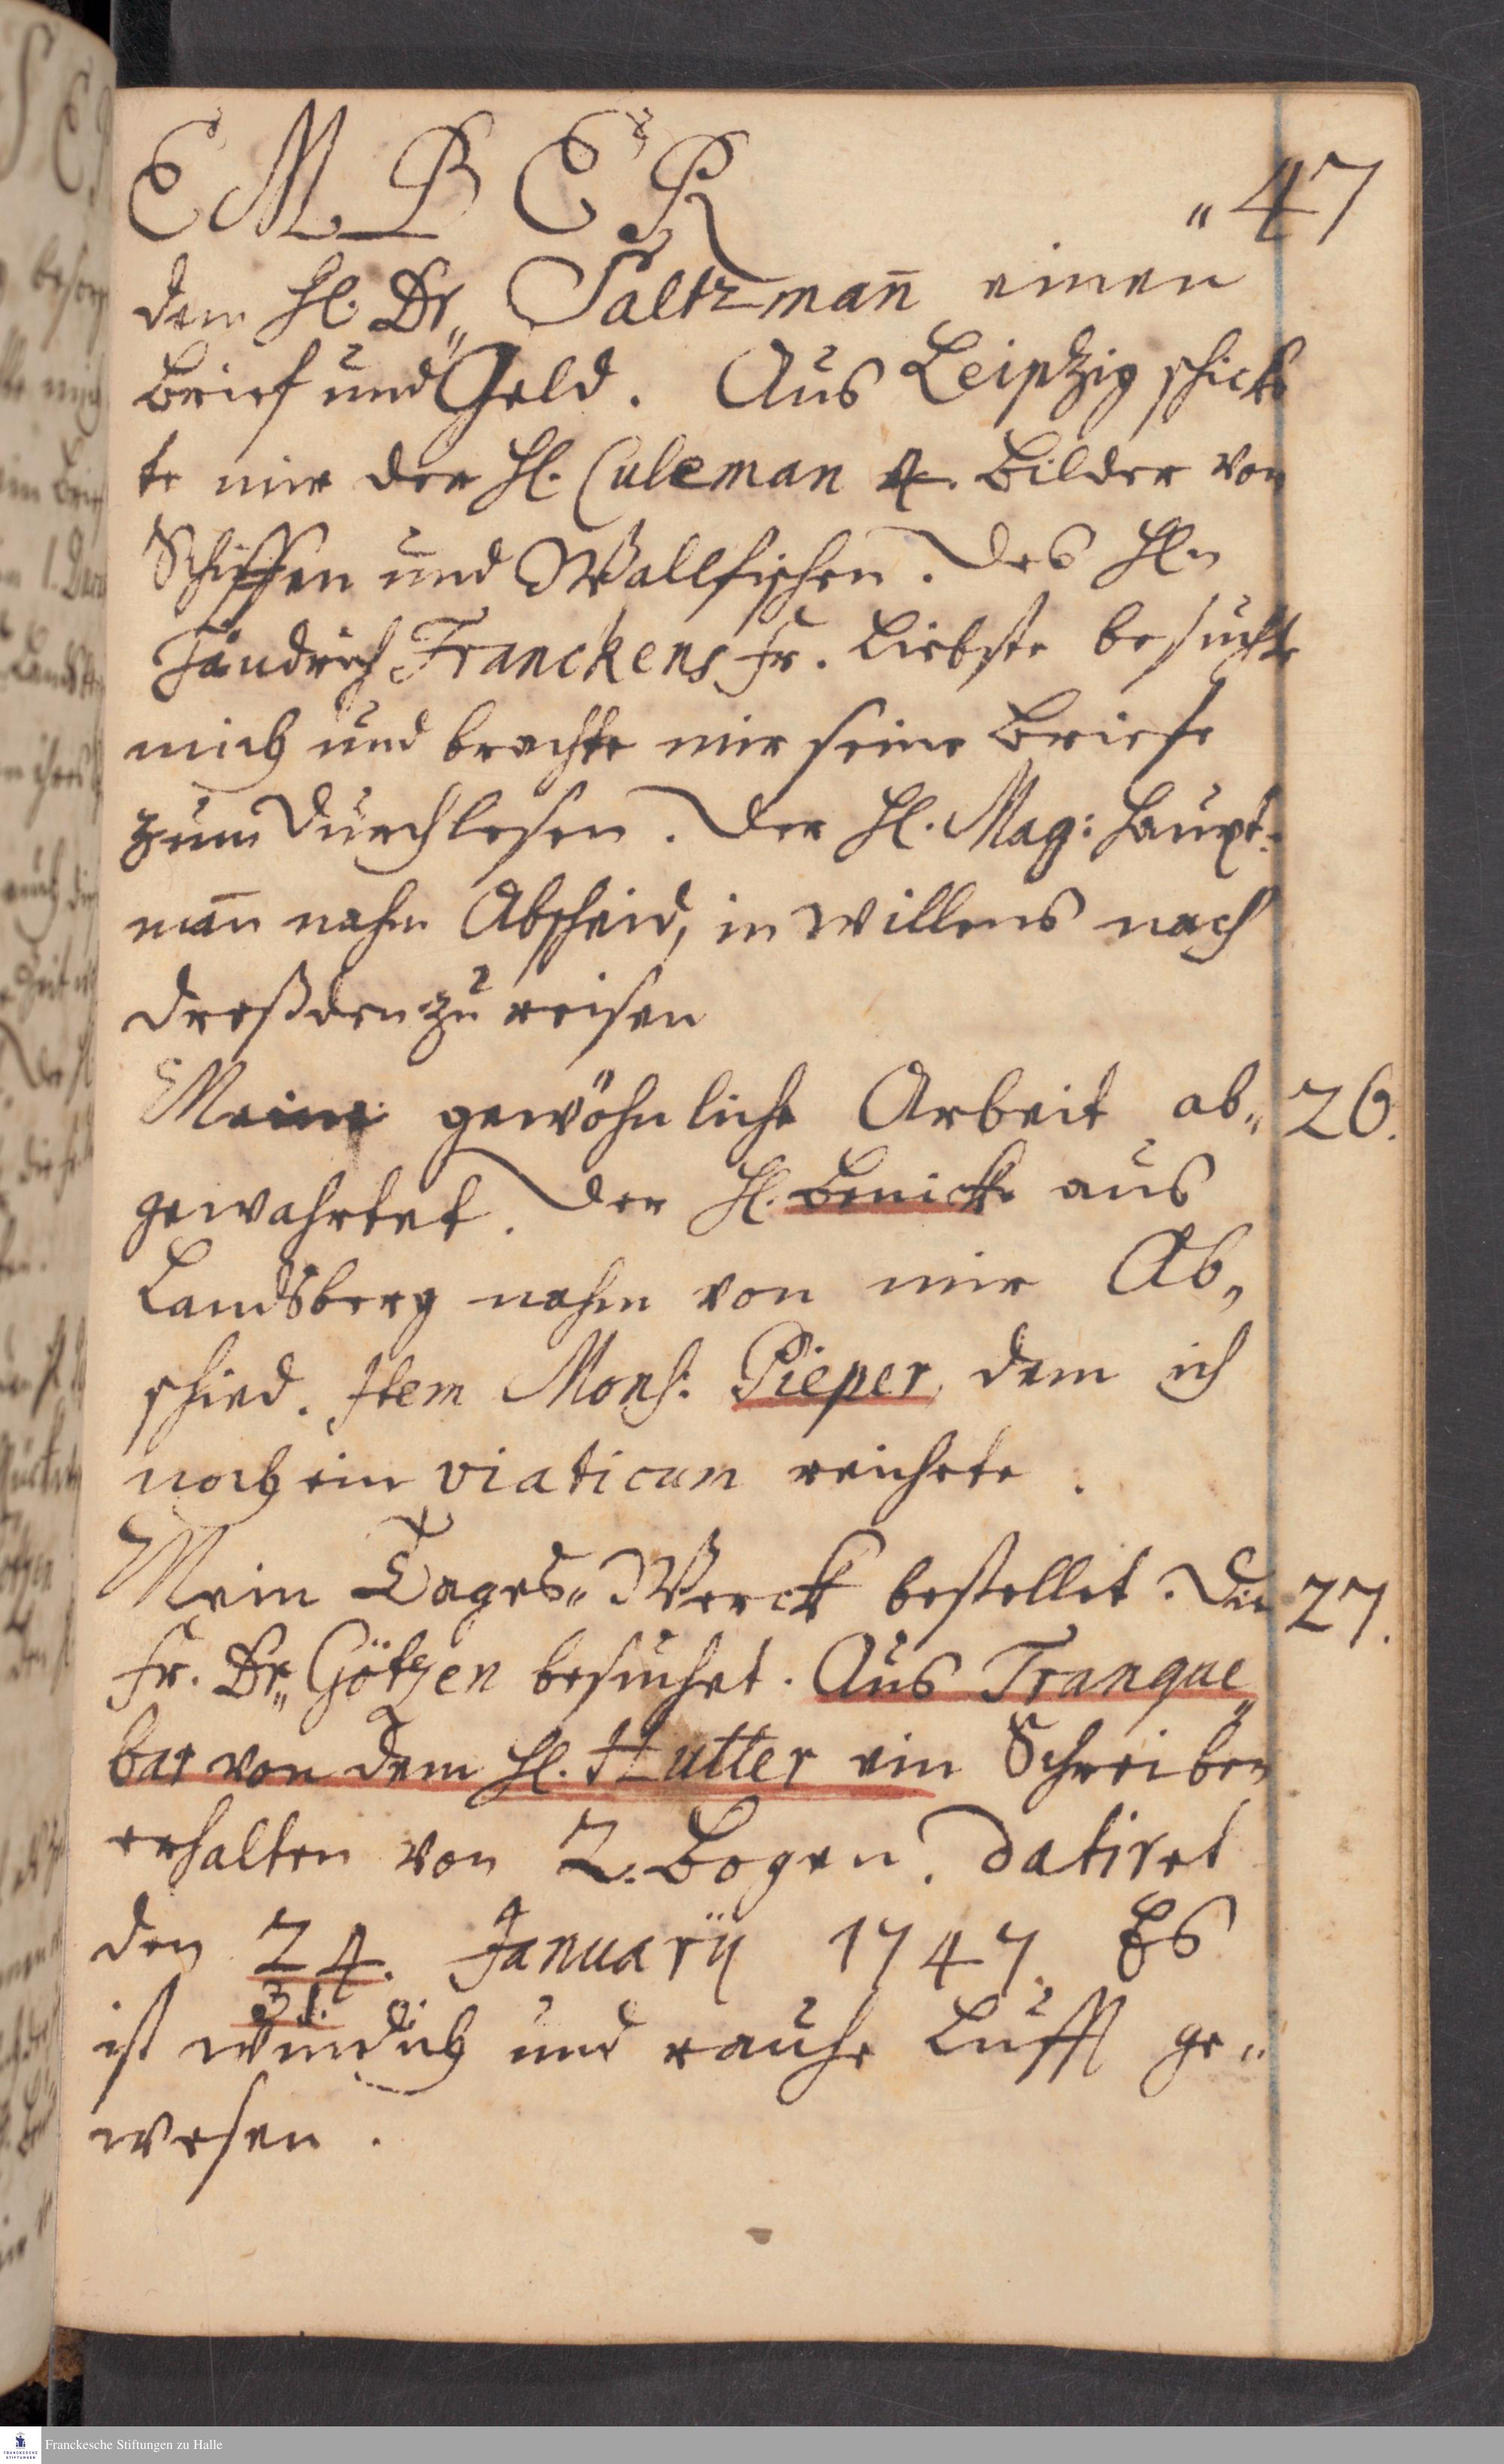 EMBER „47
dem Hl. Dr„ Saltzman̄ einen
Brief und Geld. Aus Leipzig schick
te mir der Hl. Culeman 4. Bilder von
Schiffen und Wallfischen. Des Hln
Fändrich Franckens Fr. Liebste besuchte
mich und brachte mir seine Briefe
zum Durchlesen. Der Hl. Mag: Haupt-
man̄ nahm Abscheid, in willens nach
Dreßden zu reisen
Meine gewöhnliche Arbeit ab„ 26.
gewahrtet. Der Hl. Benicke aus
Landsberg nahm von mir Ab„
schied. Item Mons: Pieper, dem ich
noch ein viaticum reichete.
Mein Tages„ Werck bestellet. Die 27.
Fr. Dr„ Götzen besuchet. Aus Tranque„
bar von dem Hl. Hutter ein Schreiben
erhalten von 2. Bogen. Datiret
den 24. Januarÿ 1747. Es
31.
ist windich und rauhe Lufft ge„
wesen.
Franckesche Stiftungen zu Halle